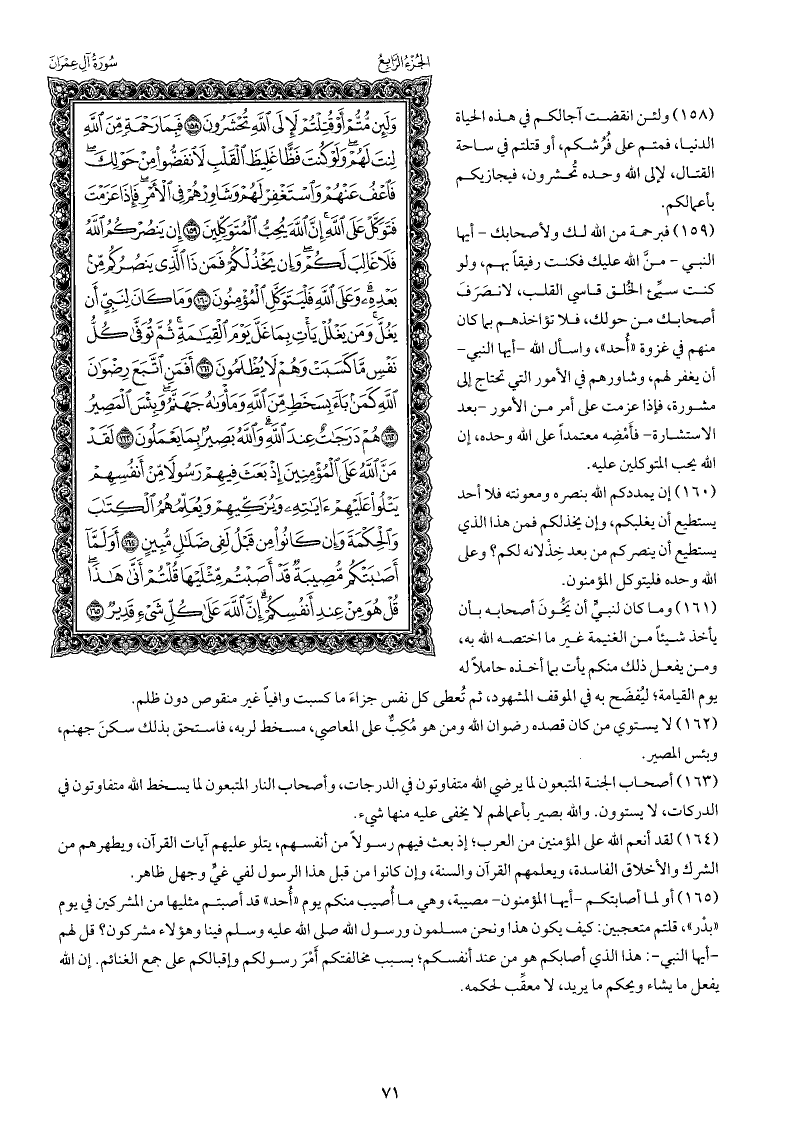 الجُزْءُ الرَّابِعُ
سُورَةُ آلِ عِمْرَانَ
وَلَئِن مُّتُّمْ أَوْ قُتِلْتُمْ لَإِلَى اللَّهِ تُحْشَرُونَ ١٥٨ فَبِمَا رَحْمَةٍ مِّنَ اللَّهِ
لِنتَ لَهُمْ وَلَوْ كُنتَ فَظًّا غَلِيظَ الْقَلْبِ لَانفَضُّوا مِنْ حَوْلِكَ
فَاعْفُ عَنْهُمْ وَاسْتَغْفِرْ لَهُمْ وَشَاوِرْهُمْ فِي الْأَمْرِ فَإِذَا عَزَمْتَ
فَتَوَكَّلْ عَلَى اللَّهِ إِنَّ اللَّهَ يُحِبُّ الْمُتَوَكِّلِينَ ١٥٩ إِن يَنصُرْكُمُ اللَّهُ
فَلَا غَالِبَ لَكُمْ وَإِن يَخْذُلْكُمْ فَمَن ذَا الَّذِي يَنصُرُكُم مِّن
بَعْدِهِ وَعَلَى اللَّهِ فَلْيَتَوَكَّلِ الْمُؤْمِنُونَ ١٦٠ وَمَا كَانَ لِنَبِيٍّ أَن
يَغُلَّ وَمَن يَغْلُلْ يَأْتِ بِمَا غَلَّ يَوْمَ الْقِيَامَةِ ثُمَّ تُوَفَّى كُلُّ
نَفْسٍ مَّا كَسَبَتْ وَهُمْ لَا يُظْلَمُونَ ١٦١ أَفَمَنِ اتَّبَعَ رِضْوَانَ
اللَّهِ كَمَن بَاءَ بِسَخَطٍ مِّنَ اللَّهِ وَمَأْوَاهُ جَهَنَّمُ وَبِئْسَ الْمَصِيرُ
١٦٢ هُمْ دَرَجَاتٌ عِندَ اللَّهِ وَاللَّهُ بَصِيرٌ بِمَا يَعْمَلُونَ ١٦٣ لَقَدْ
مَنَّ اللَّهُ عَلَى الْمُؤْمِنِينَ إِذْ بَعَثَ فِيهِمْ رَسُولًا مِّنْ أَنفُسِهِمْ
يَتْلُوا عَلَيْهِمْ ءَايَاتِهِ وَيُزَكِّيهِمْ وَيُعَلِّمُهُمُ الْكِتَابَ
وَالْحِكْمَةَ وَإِن كَانُوا مِن قَبْلُ لَفِي ضَلَالٍ مُّبِينٍ ١٦٤ أَوَلَمَّا
أَصَابَتْكُم مُّصِيبَةٌ قَدْ أَصَبْتُم مِّثْلَيْهَا قُلْتُمْ أَنَّى هَذَا
قُلْ هُوَ مِنْ عِندِ أَنفُسِكُمْ إِنَّ اللَّهَ عَلَى كُلِّ شَيْءٍ قَدِيرٌ ١٦٥
(١٥٨) ولئن انقضت آجالكم في هذه الحياة
الدنيا، فمتم على فُرُشكم، أو قتلتم في ساحة
القتال، لإلى الله وحده تُحشرون، فيجازيكم
بأعمالكم.
(١٥٩) فبرحمة من الله لك ولأصحابك - أيها
النبي - منَّ الله عليك فكنت رفيقاً بهم، ولو
كنت سيِّئ الخُلق قاسي القلب، لانصَرَفَ
أصحابك من حولك، فلا تؤاخذهم بما كان
منهم في غزوة «أُحد»، واسأل الله -أيها النبي-
أن يغفر لهم، وشاورهم في الأمور التي تحتاج إلى
مشورة، فإذا عزمت على أمر من الأمور -بعد
الاستشارة- فأَمْضِه معتمداً على الله وحده، إن
الله يحب المتوكلين عليه.
(١٦٠) إن يمددكم الله بنصره ومعونته فلا أحد
يستطيع أن يغلبكم، وإن يخذلكم فمن هذا الذي
يستطيع أن ينصركم من بعد خِذْلانه لكم؟ وعلى
الله وحده فليتوكل المؤمنون.
(١٦١) وما كان لنبيٍّ أن يَخُونَ أصحابه بأن
يأخذ شيئاً من الغنيمة غير ما اختصه الله به،
ومن يفعل ذلك منكم يأت بما أخذه حاملاً له
يوم القيامة؛ ليُفضَح به في الموقف المشهود، ثم تُعطى كل نفس جزاءَ ما كسبت وافياً غير منقوص دون ظلم.
(١٦٢) لا يستوي من كان قصده رضوان الله ومن هو مُكِبٌّ على المعاصي، مسخط لربه، فاستحق بذلك سكنَ جهنم،
وبئس المصير.
(١٦٣) أصحاب الجنة المتبعون لما يرضي الله متفاوتون في الدرجات، وأصحاب النار المتبعون لما يسخط الله متفاوتون في
الدركات، لا يستوون. والله بصير بأعمالهم لا يخفى عليه منها شيء.
(١٦٤) لقد أنعم الله على المؤمنين من العرب؛ إذ بعث فيهم رسولاً من أنفسهم، يتلو عليهم آيات القرآن، ويطهرهم من
الشرك والأخلاق الفاسدة، ويعلمهم القرآن والسنة، وإن كانوا من قبل هذا الرسول لفي غيٍّ وجهل ظاهر.
(١٦٥) أو لما أصابتكم -أيها المؤمنون- مصيبة، وهي ما أُصيب منكم يوم «أُحد» قد أصبتم مثليها من المشركين في يوم
«بدْر»، قلتم متعجبين: كيف يكون هذا ونحن مسلمون ورسول الله صلى الله عليه وسلم فينا وهؤلاء مشركون؟ قل لهم
-أيها النبي-: هذا الذي أصابكم هو من عند أنفسكم؛ بسبب مخالفتكم أَمْرَ رسولكم وإقبالكم على جمع الغنائم. إن الله
يفعل ما يشاء ويحكم ما يريد، لا معقِّب لحكمه.
٧١